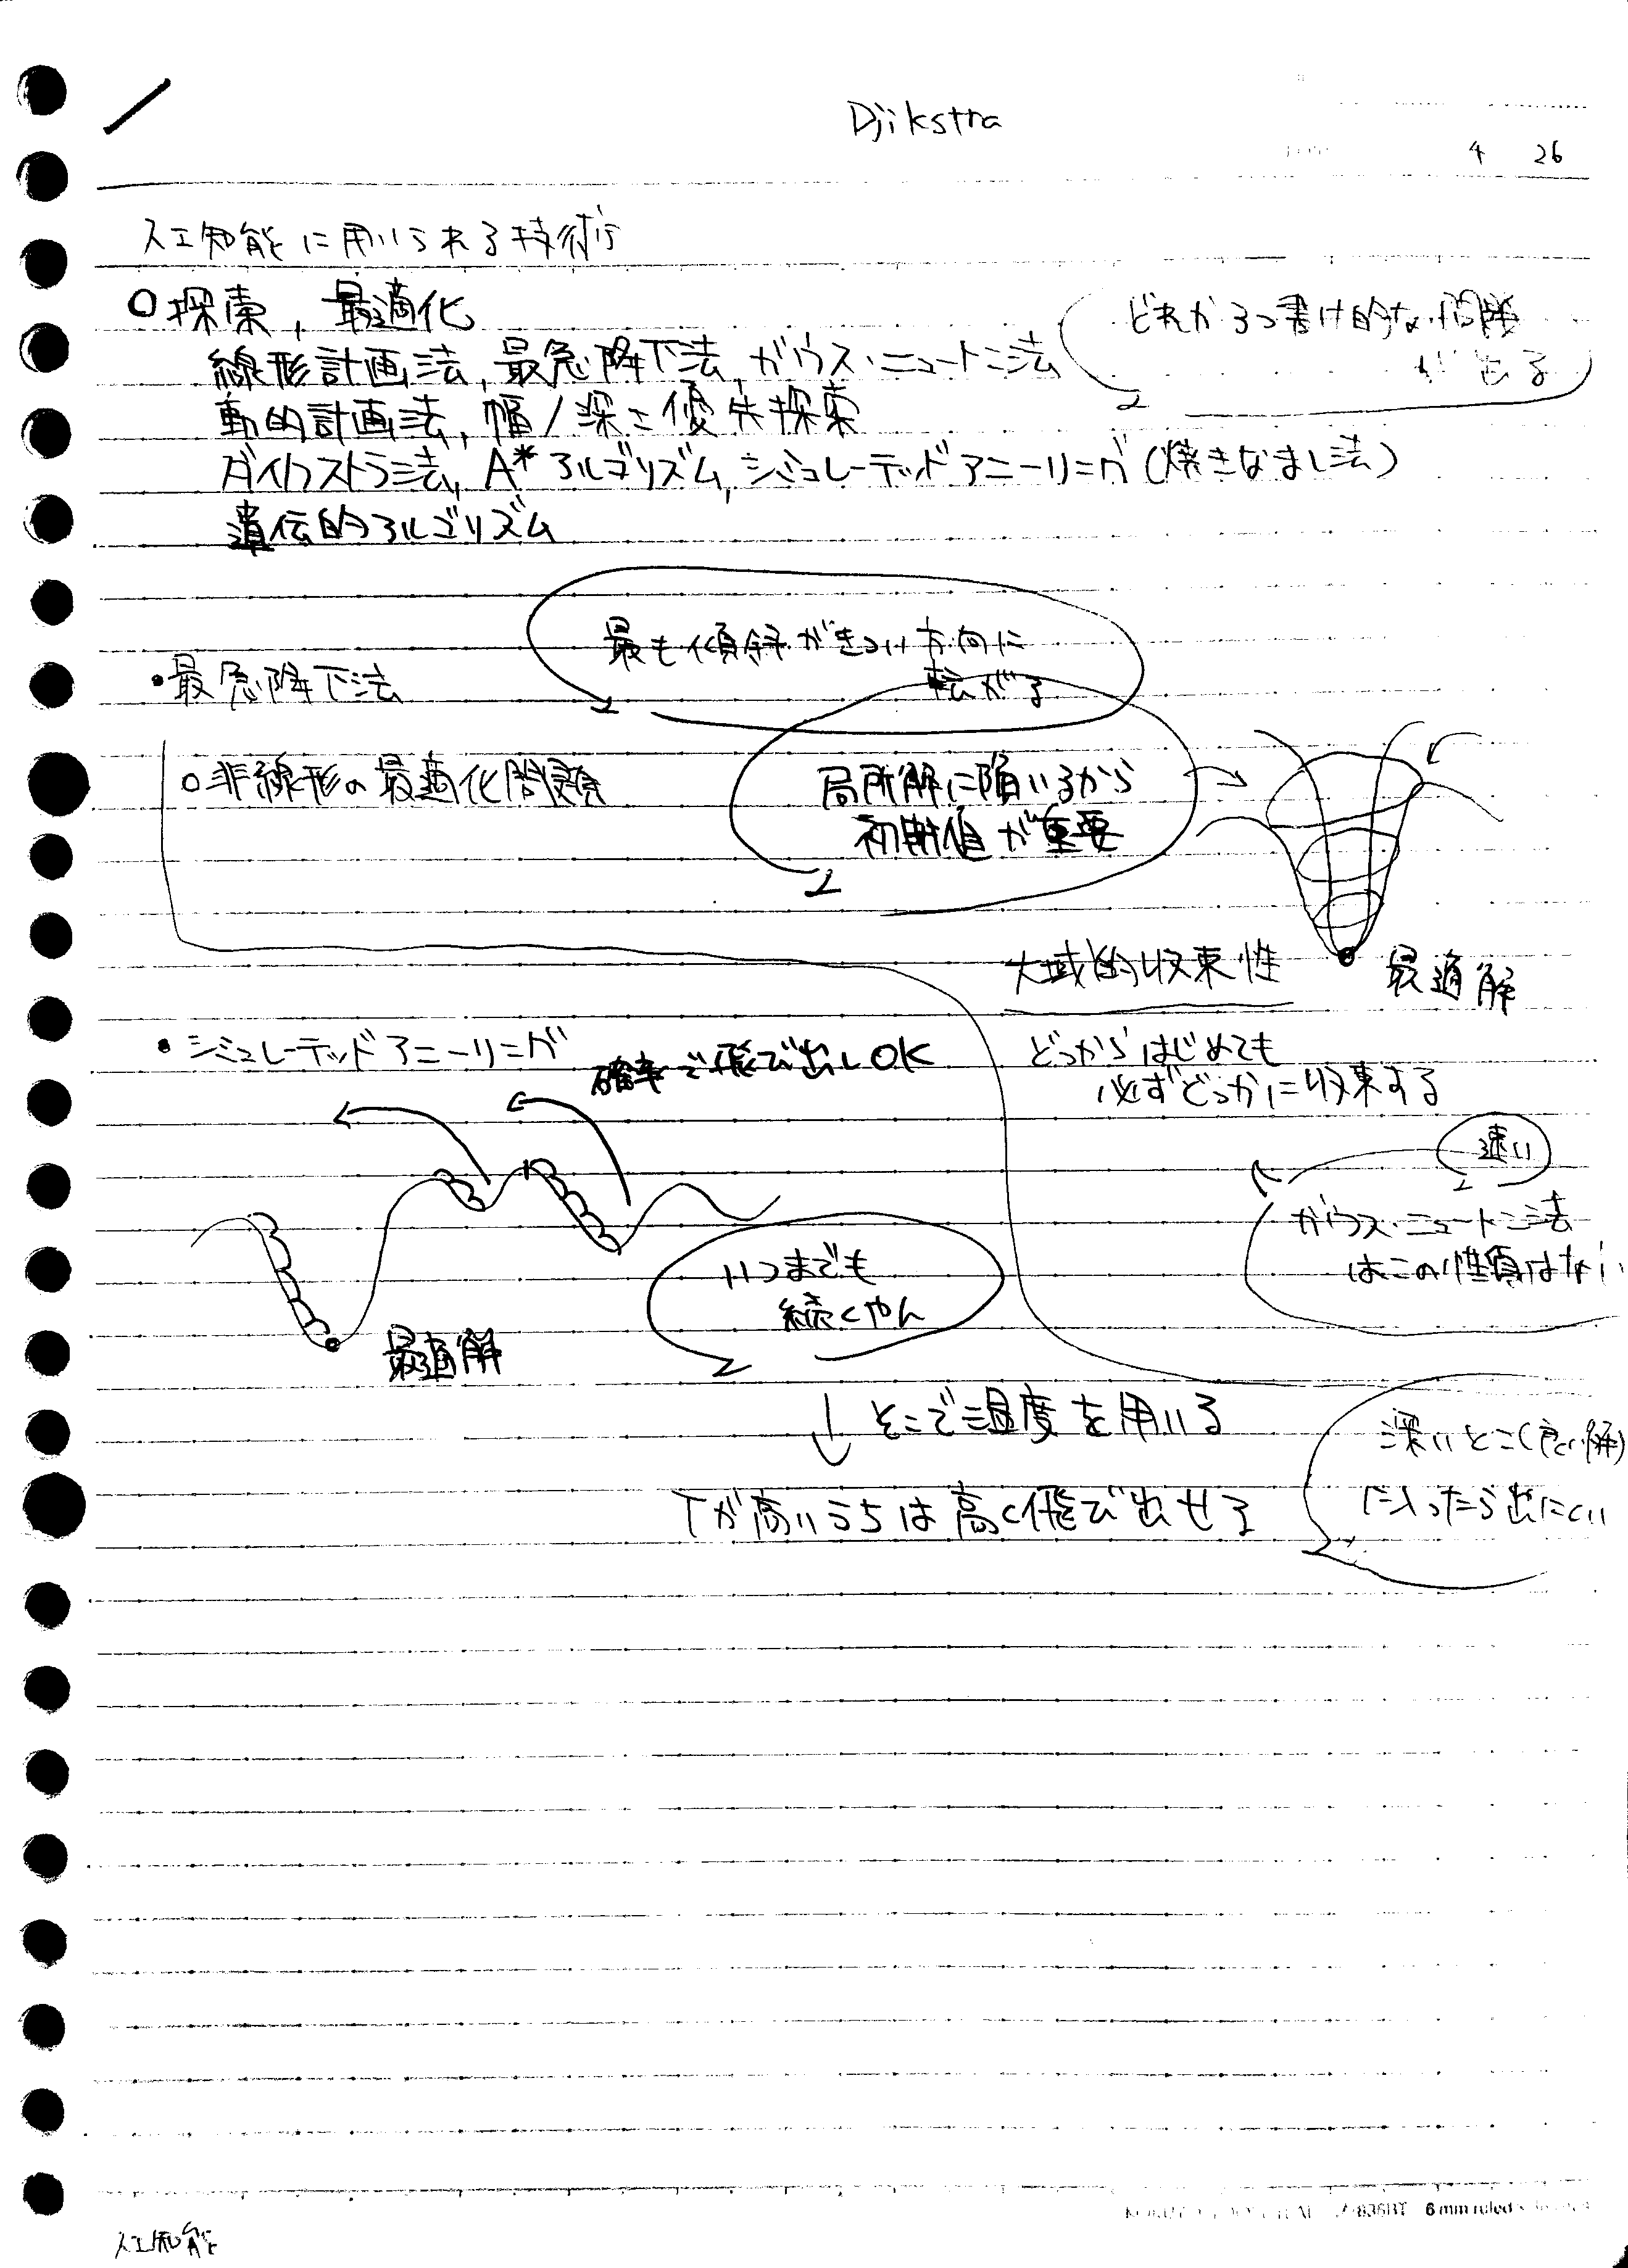 Djikstra
4 26
人工知能に用いられる技術
○探索，最適化
線形計画法，最急降下法 ガウス・ニュートン法
どれか3つ書け的な問題
が出る
動的計画法，幅/深さ優先探索
ダイクストラ法，A*アルゴリズム，シミュレーテッドアニーリング(焼きなまし法)
遺伝的アルゴリズム
最も傾斜がきつい方向に
転がる
・最急降下法
○非線形の最適化問題
局所解に陥いるから
初期値が重要
最適解
大域的収束性
どっからはじめても
必ずどっかに収束する
速い
ガウス・ニュートン法
はこの性質はない
・シミュレーテッドアニーリング
確率で飛び出しOK
最適解
いつまでも
続くやん
↓ そこで温度を用いる
Tが高いうちは高く飛び出せる
深いとこ(良い解)
に入ったら出にくい
6mm ruled
人工知能